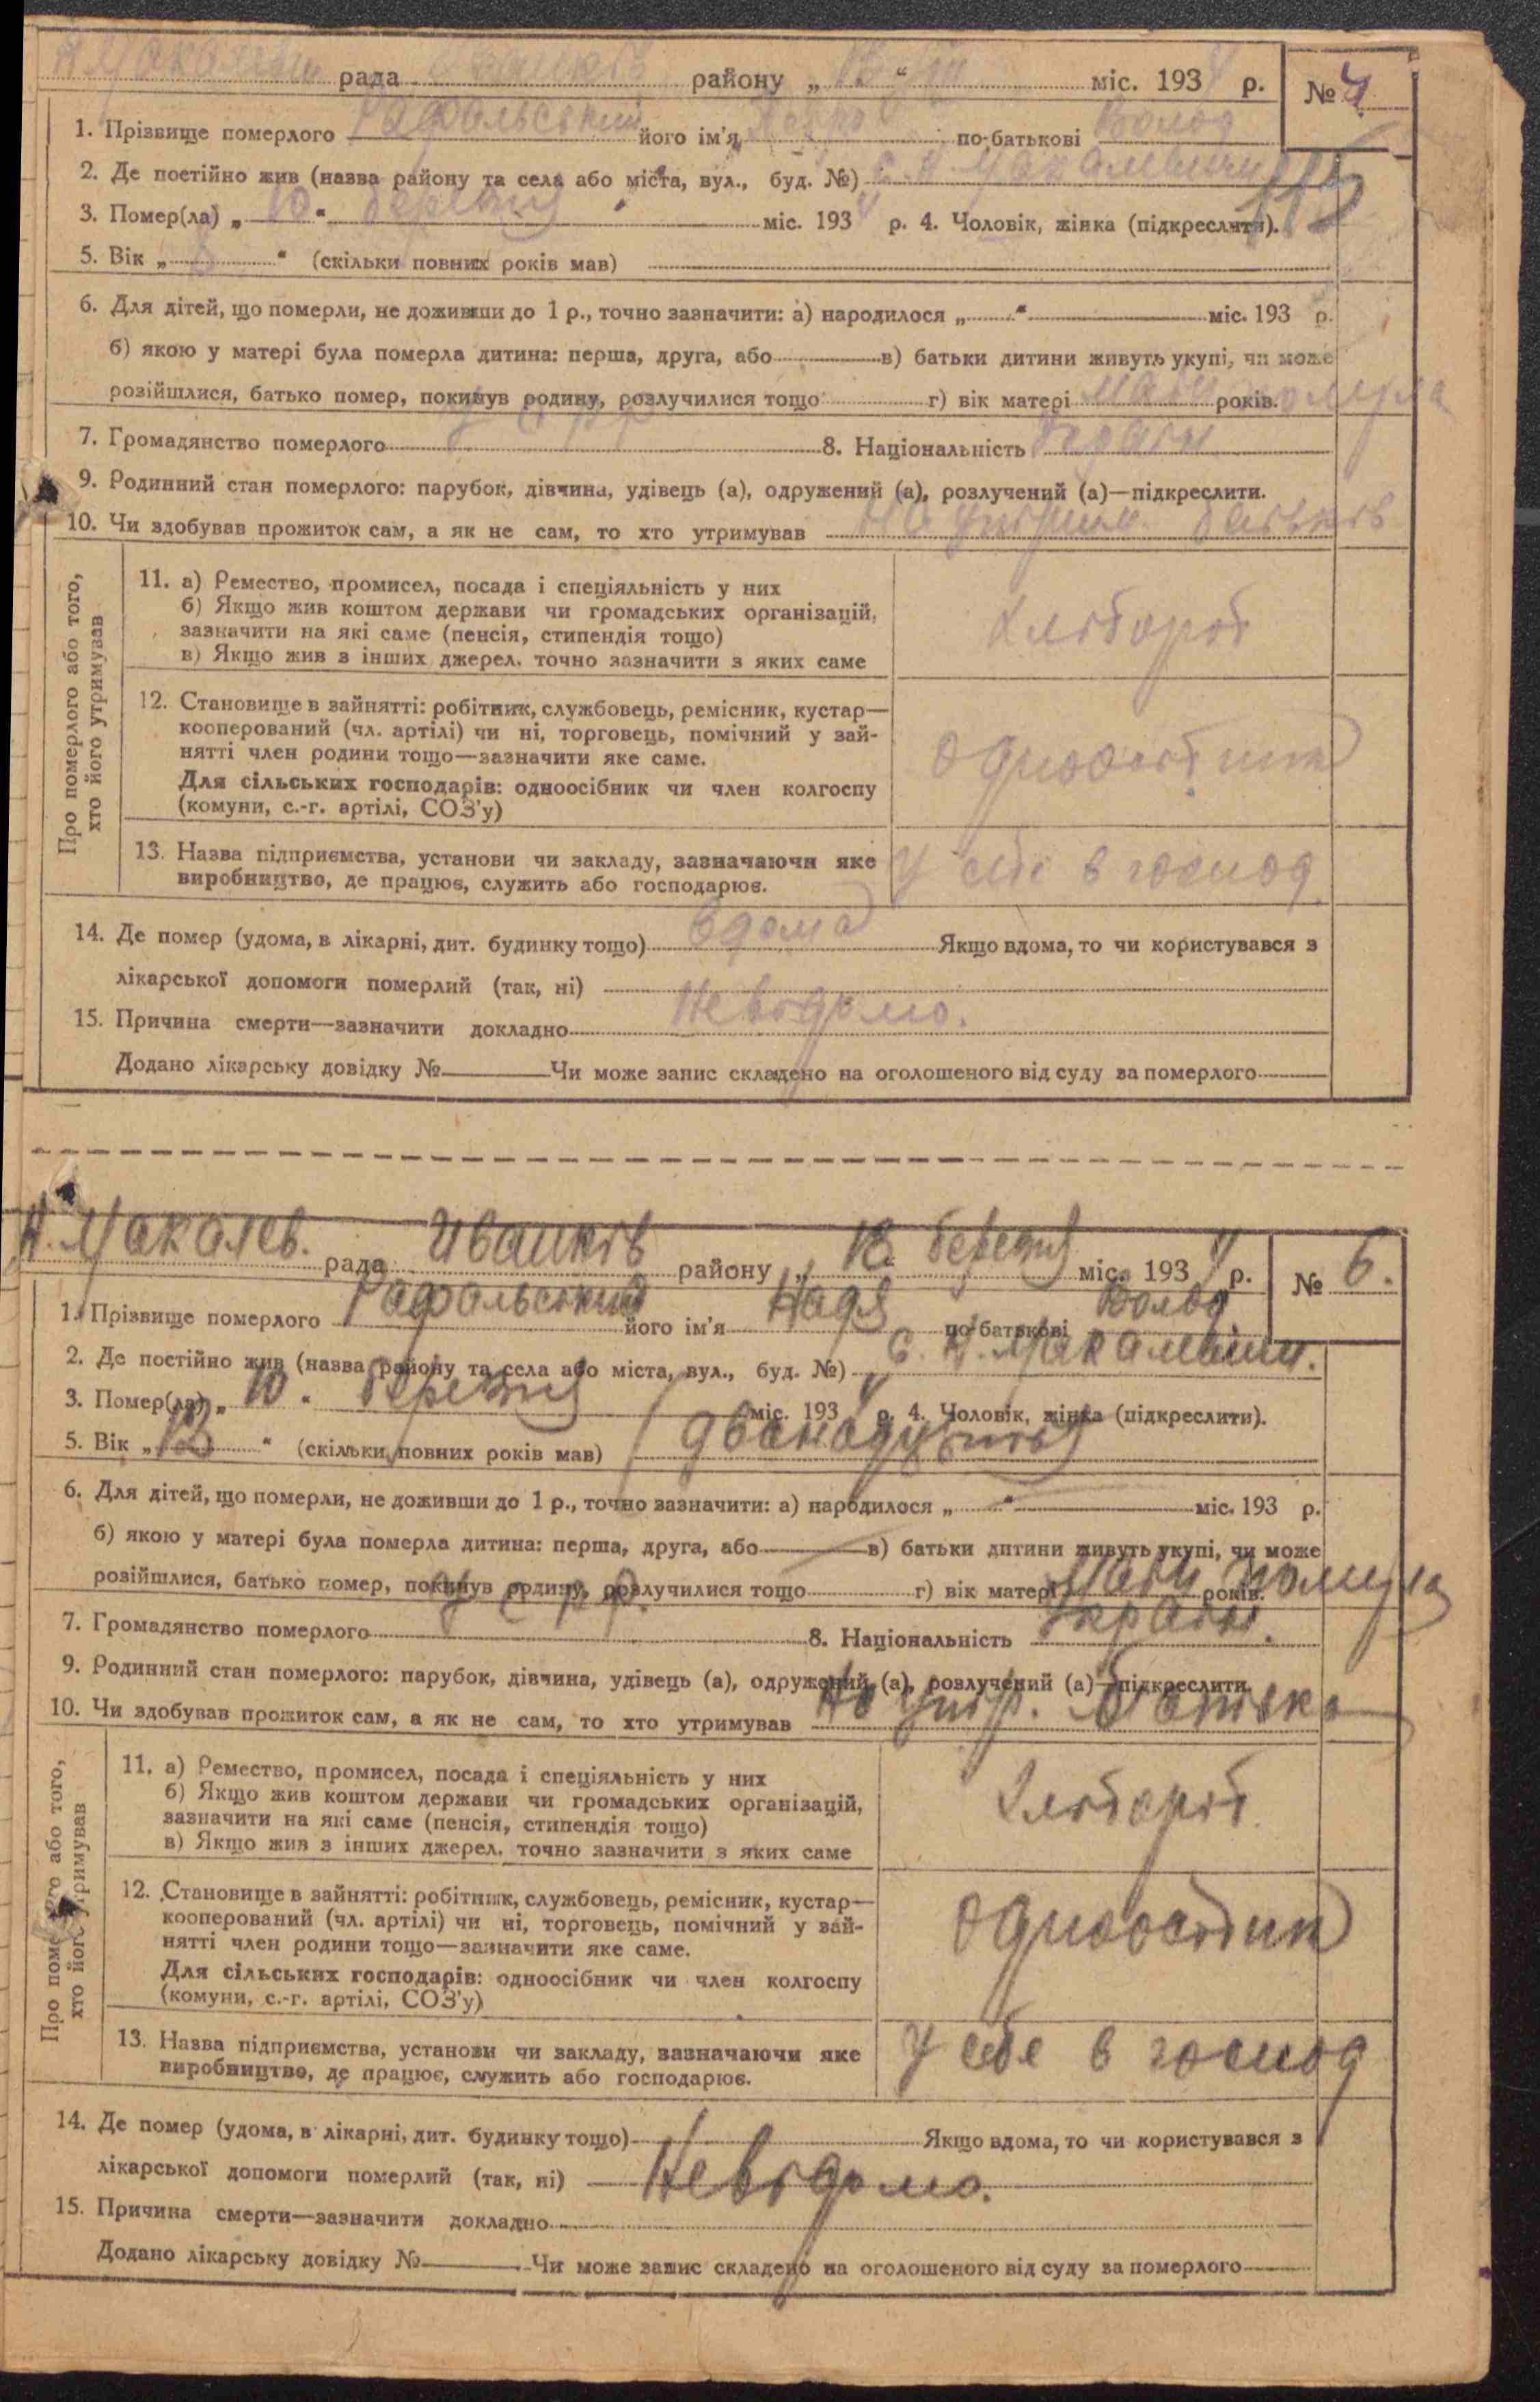 Н. Макалев. рада Иванків району „ 13 “ III міс. 1934 р. № 4
1. Прізвище померлого Рафальський його ім'я Петро по-батькові Волод
2. Де постійно жив (назва району та села або міста, вул., буд. №) с. Н. Макалевичи
3. Помер(ла) „ 10 “ березня міс. 1934 р. 4. Чоловік, жінка (підкреслити).
5. Вік „ “ (скільки повних років мав)
6. Для дітей, що померли, не доживши до 1 р., точно зазначити: а) народилося „ “ міс. 193 р.
б) якою у матері була померла дитина: перша, друга, або в) батьки дитини живуть укупі, чи може
розійшлися, батько помер, покинув родину, розлучилися тощо г) вік матері мати померла років.
7. Громадянство померлого УСРР 8. Національність Україн
9. Родинний стан померлого: парубок, дівчина, удівець (а), одружений (а), розлучений (а)—підкреслити.
10. Чи здобував прожиток сам, а як не сам, то хто утримував На утрим. батьків
Про померлого або того,
хто його утримував
11. а) Ремество, промисел, посада і спеціяльність у них
б) Якщо жив коштом держави чи громадських організацій,
зазначити на які саме (пенсія, стипендія тощо)
в) Якщо жив з інших джерел, точно зазначити з яких саме
Хлібороб
12. Становище в зайнятті: робітник, службовець, ремісник, кустар—
кооперований (чл. артілі) чи ні, торговець, помічний у зай-
нятті член родини тощо—зазначити яке саме.
Для сільських господарів: одноосібник чи член колгоспу
(комуни, с.-г. артілі, СОЗ'у)
Одноосібник
13. Назва підприємства, установи чи закладу, зазначаючи яке
виробництво, де працює, служить або господарює.
У себе в господ
14. Де помер (удома, в лікарні, дит. будинку тощо) вдома Якщо вдома, то чи користувався з
лікарської допомоги померлий (так, ні)
15. Причина смерти—зазначити докладно Невідомо.
Додано лікарську довідку № Чи може запис складено на оголошеного від суду за померлого
Н. Макалев. рада Иванків району „ 13. березня міс. 1934 р. № 6.
1. Прізвище померлого Рафальський його ім'я Надя по-батькові Волод
2. Де постійно жив (назва району та села або міста, вул., буд. №) С. Н. Макалевичи.
3. Помер(ла) „ 10 “ березня міс. 1934 р. 4. Чоловік, жінка (підкреслити).
5. Вік „ “ (скільки повних років мав) дванадцять
6. Для дітей, що померли, не доживши до 1 р., точно зазначити: а) народилося „ “ міс. 193 р.
б) якою у матері була померла дитина: перша, друга, або в) батьки дитини живуть укупі, чи може
розійшлися, батько помер, покинув родину, розлучилися тощо г) вік матері мати померла років.
7. Громадянство померлого УСРР. 8. Національність Україн.
9. Родинний стан померлого: парубок, дівчина, удівець (а), одружений (а), розлучений (а)—підкреслити.
10. Чи здобував прожиток сам, а як не сам, то хто утримував На утр. батька
Про померлого або того,
хто його утримував
11. а) Ремество, промисел, посада і спеціяльність у них
б) Якщо жив коштом держави чи громадських організацій,
зазначити на які саме (пенсія, стипендія тощо)
в) Якщо жив з інших джерел, точно зазначити з яких саме
Хлібороб.
12. Становище в зайнятті: робітник, службовець, ремісник, кустар—
кооперований (чл. артілі) чи ні, торговець, помічний у зай-
нятті член родини тощо—зазначити яке саме.
Для сільських господарів: одноосібник чи член колгоспу
(комуни, с.-г. артілі, СОЗ'у)
Одноосібник
13. Назва підприємства, установи чи закладу, зазначаючи яке
виробництво, де працює, служить або господарює.
У себе в господ
14. Де помер (удома, в лікарні, дит. будинку тощо) Якщо вдома, то чи користувався з
лікарської допомоги померлий (так, ні) Невідомо.
15. Причина смерти—зазначити докладно
Додано лікарську довідку № Чи може запис складено на оголошеного від суду за померлого